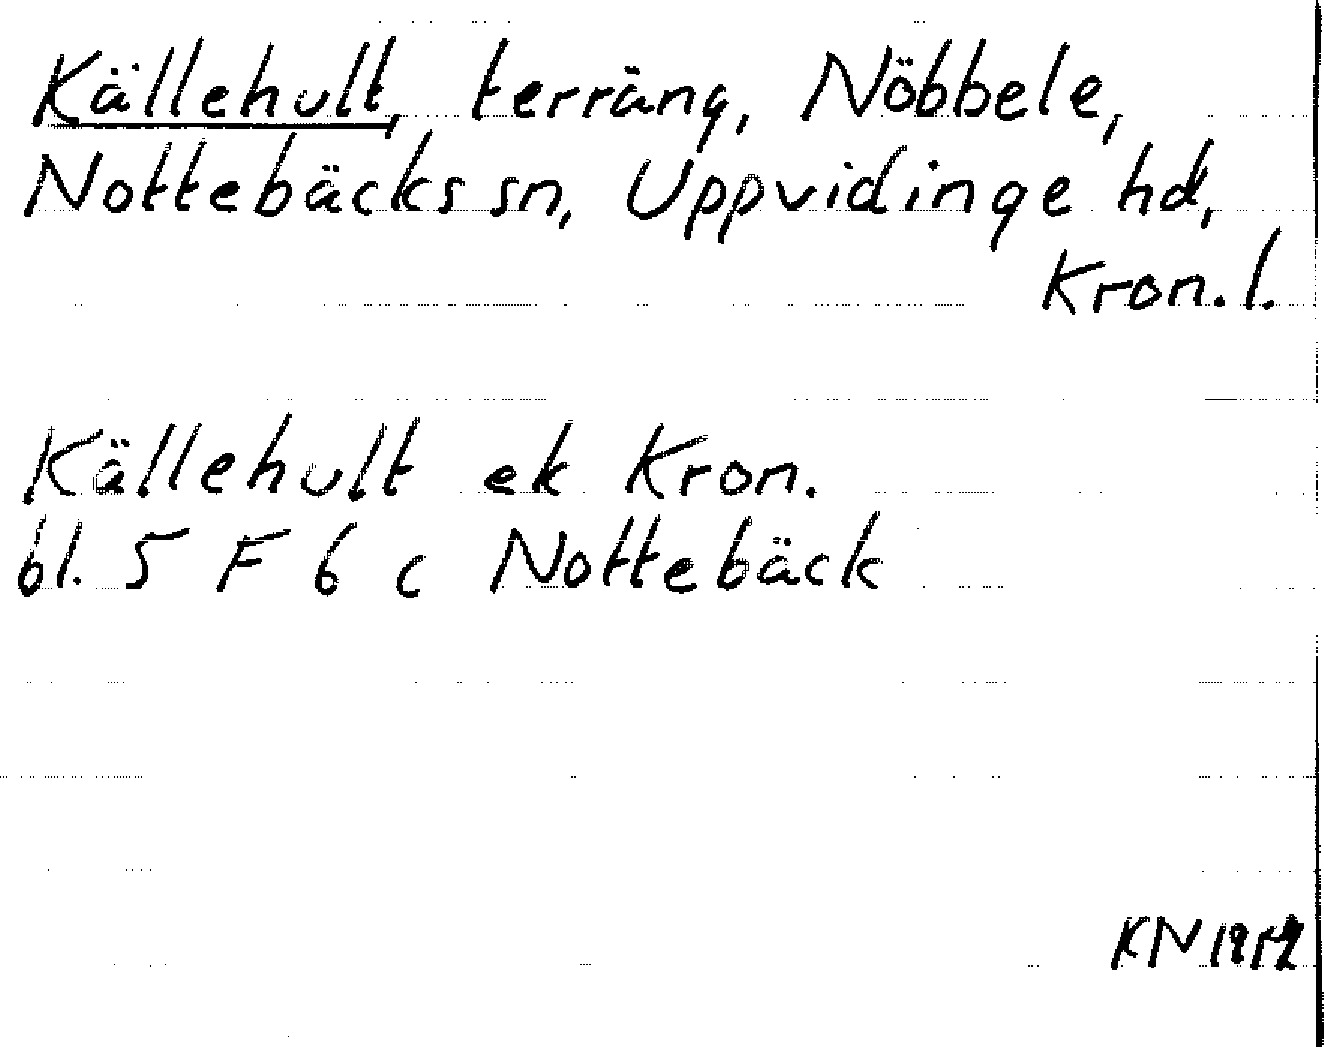 Källehult, terräng, Nöbbele,
Nottebäcks sn, Uppvidinge hd,
Kron. l.
Källehult ek Kron.
bl. 5 F 6 c Nottebäck
KN